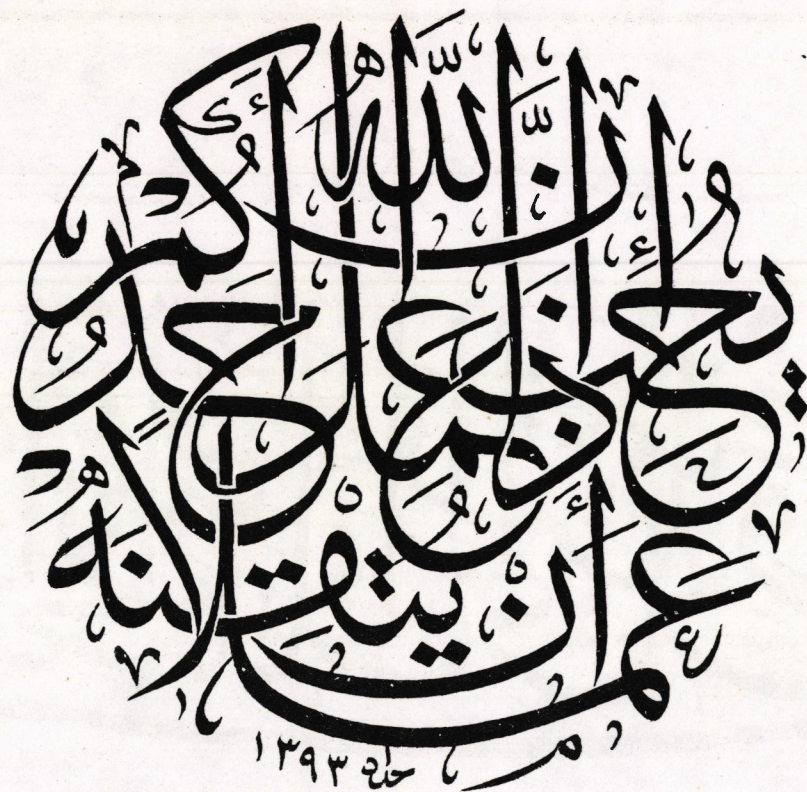 إن الله يحب إذا عمل أحدكم
عملا أن يتقنه
١٣٩٣